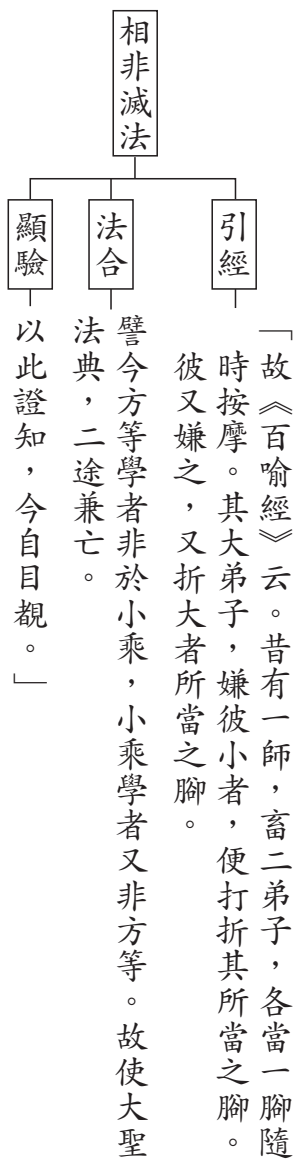 相非滅法
引經
「故《百喻經》云。昔有一師，畜二弟子，各當一腳隨
時按摩。其大弟子，嫌彼小者，便打折其所當之腳。
彼又嫌之，又折大者所當之腳。
法合
譬今方等學者非於小乘，小乘學者又非方等。故使大聖
法典，二途兼亡。
顯驗
以此證知，今自目覩。」